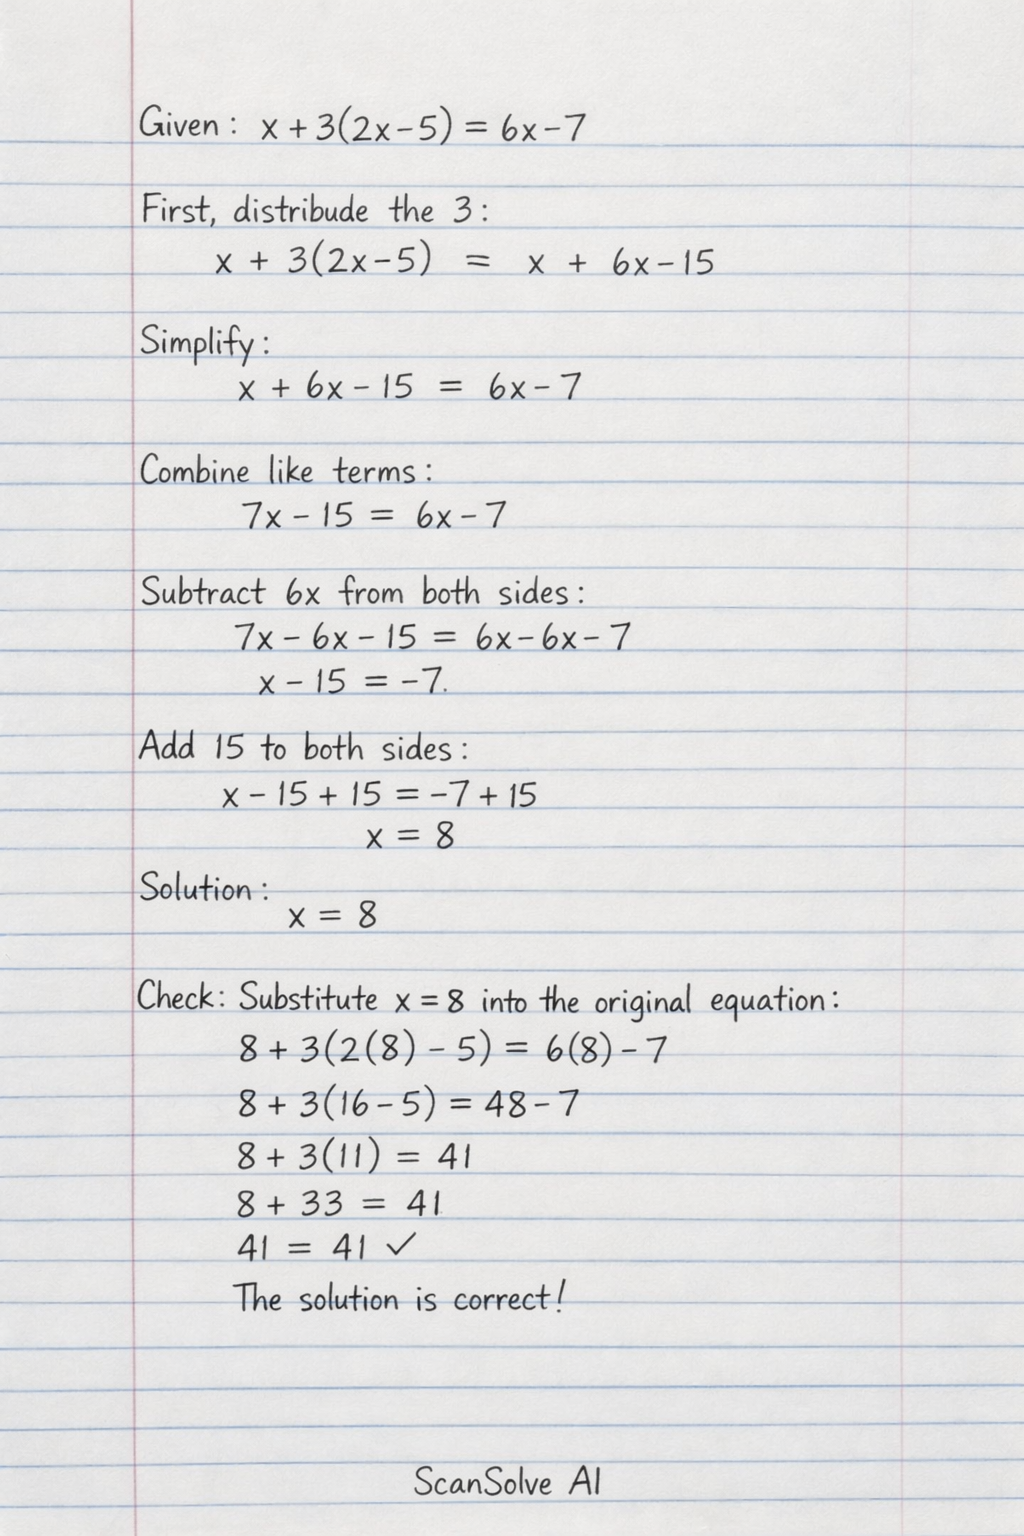 Given: x + 3(2x-5) = 6x-7
First, distribude the 3:
x + 3(2x-5) = x + 6x-15
Simplify:
x + 6x - 15 = 6x - 7
Combine like terms:
7x - 15 = 6x - 7
Subtract 6x from both sides:
7x - 6x - 15 = 6x - 6x - 7
x - 15 = -7.
Add 15 to both sides:
x - 15 + 15 = -7 + 15
x = 8
Solution:
x = 8
Check: Substitute x = 8 into the original equation:
8 + 3(2(8) - 5) = 6(8) - 7
8 + 3(16 - 5) = 48 - 7
8 + 3(11) = 41
8 + 33 = 41
41 = 41 ✓
The solution is correct!
ScanSolve AI